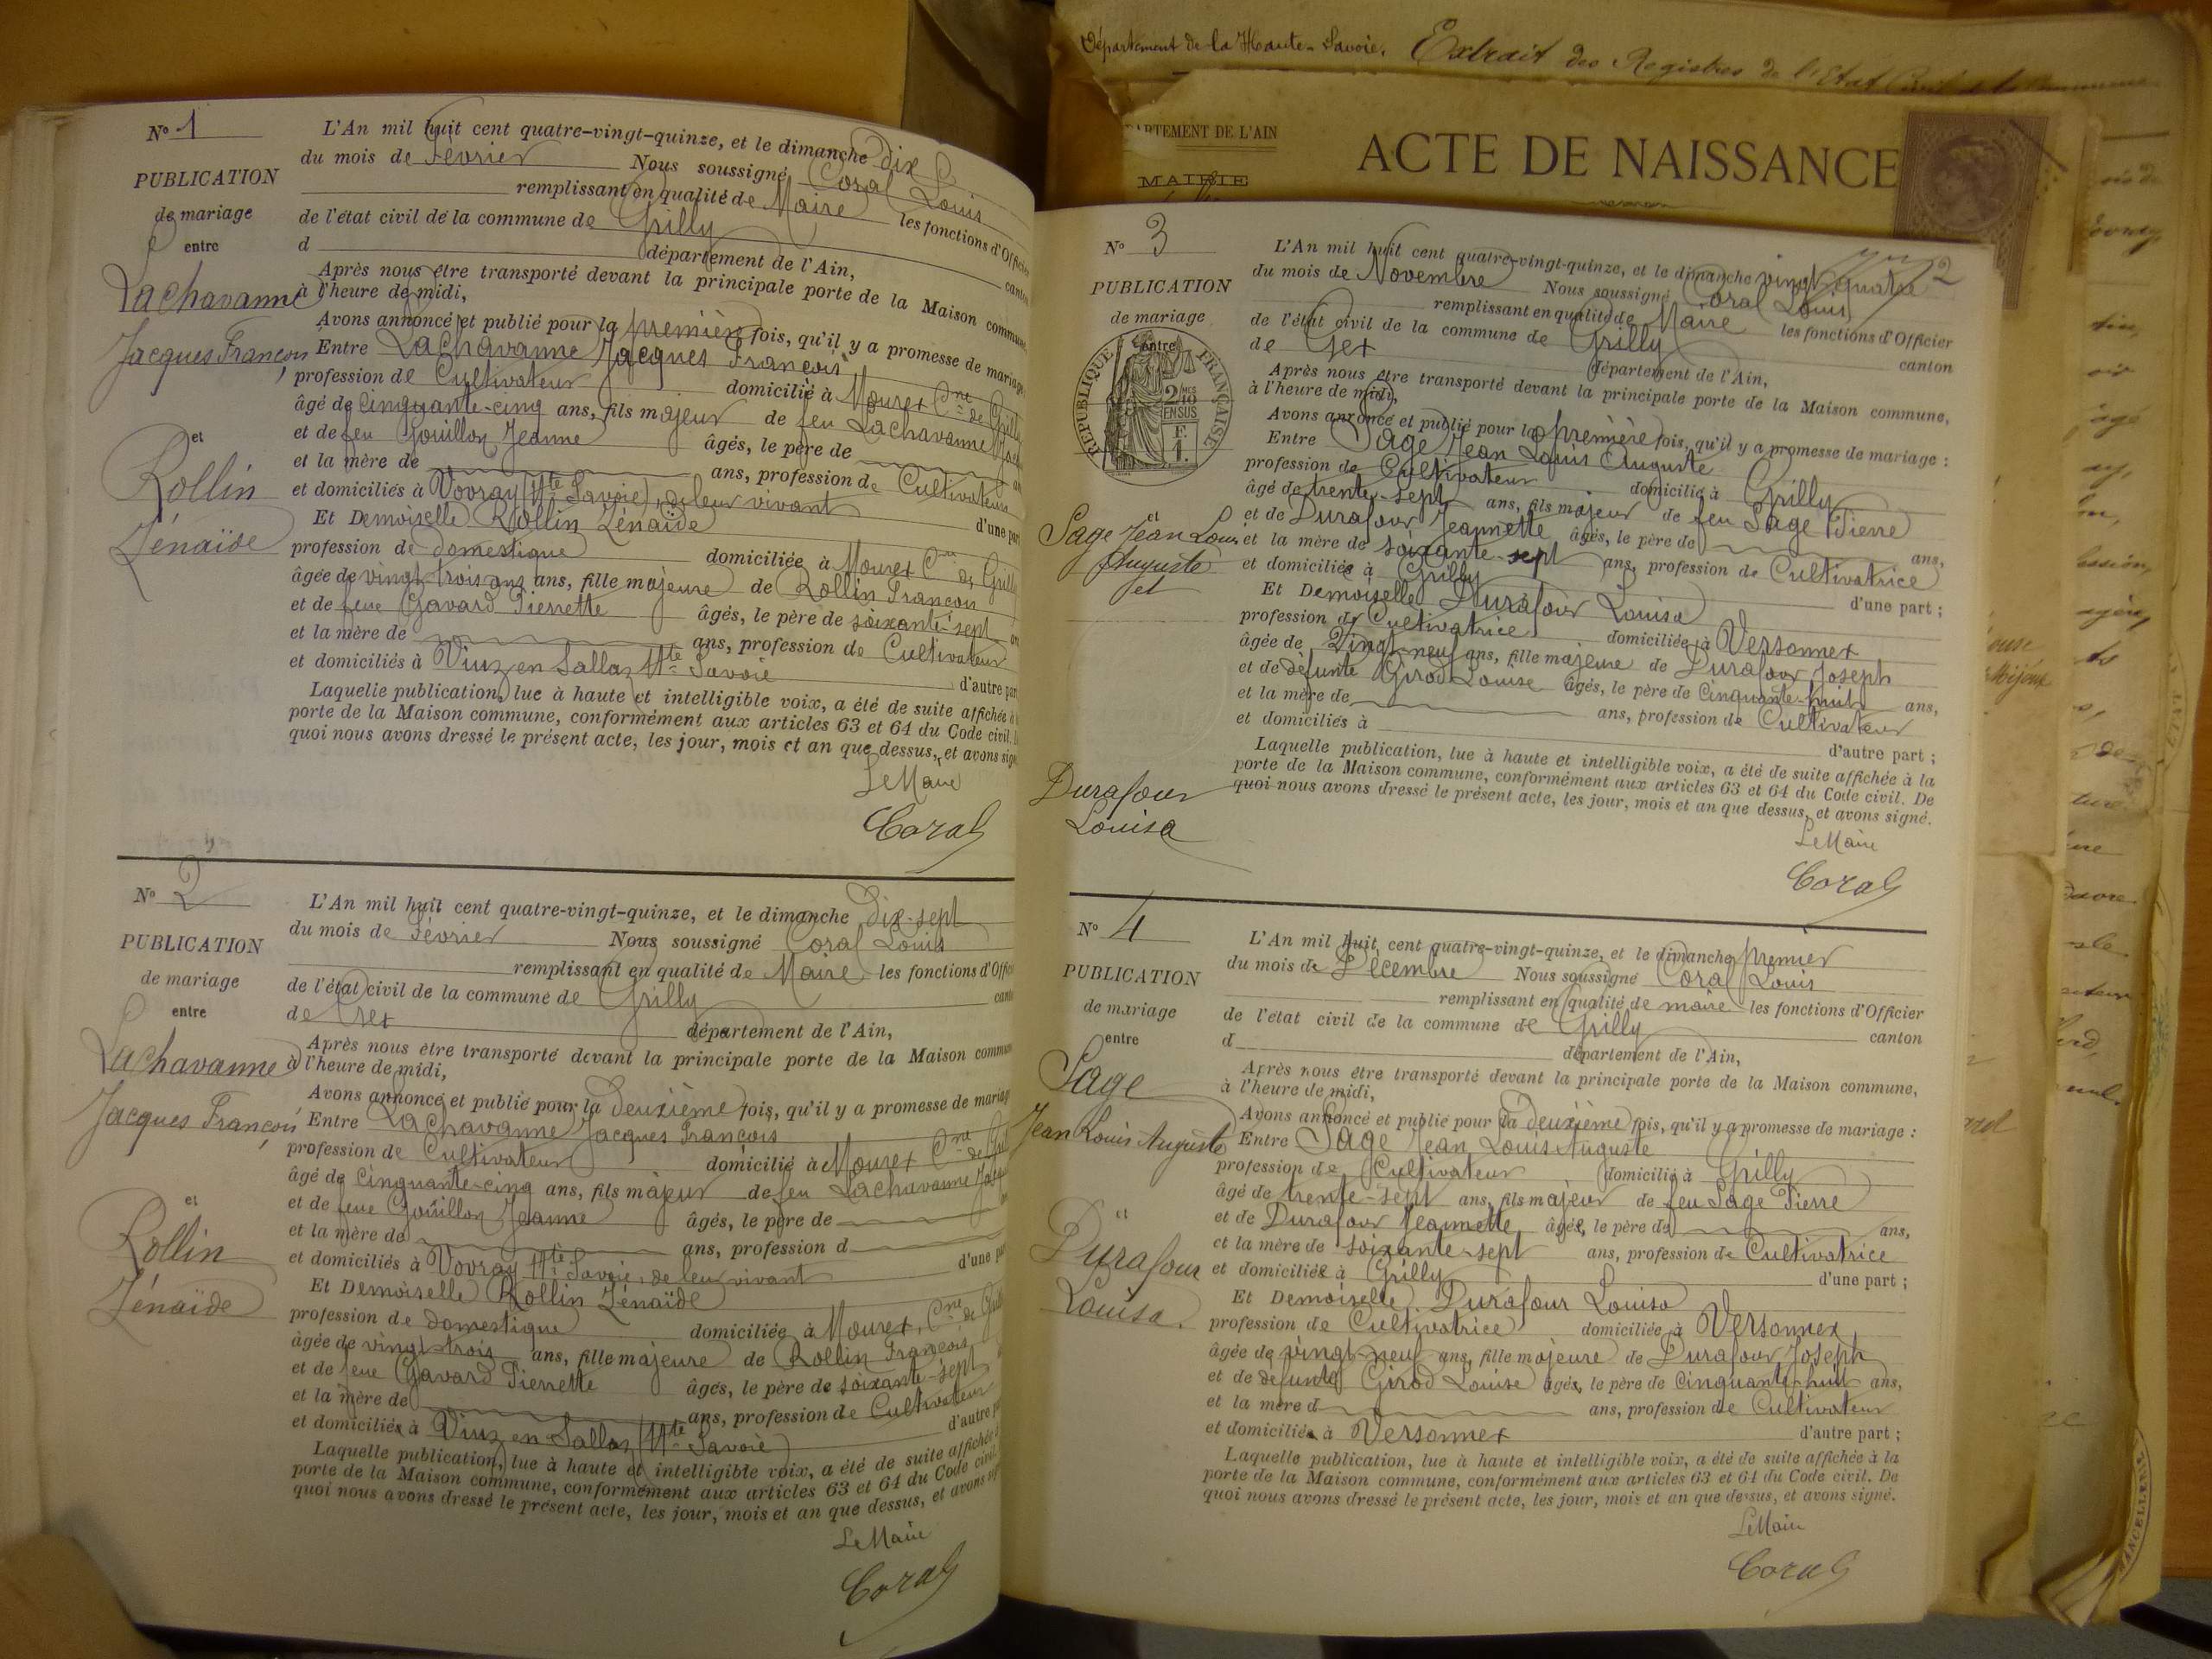 Département de la Haute-Savoie. Extrait des Registres de l'Etat Civil de la Commune
DÉPARTEMENT DE L'AIN
MAIRIE
ACTE DE NAISSANCE
N° 1
PUBLICATION
de mariage
entre
Lachavanne
Jacques François
et
Rollin
Zénaïde
L'An mil huit cent quatre-vingt-quinze, et le dimanche dix
du mois de Février Nous soussigné Coral Louis
remplissant en qualité de Maire les fonctions d'Officier
de l'état civil de la commune de Grilly canton
d département de l'Ain,
Après nous être transporté devant la principale porte de la Maison commune,
à l'heure de midi,
Avons annoncé et publié pour la première fois, qu'il y a promesse de mariage
Entre Lachavanne Jacques François
profession de Cultivateur domicilié à Mourex Cne de Grilly
âgé de Cinquante-cinq ans, fils majeur de feu Lachavanne
et de feu Gouillon Jeanne âgés, le père de
et la mère de ans, profession de Cultivateurs
et domiciliés à Vovray (Hte Savoie), de leur vivant d'une part
Et Demoiselle Rollin Zénaïde
profession de domestique domiciliée à Mourex Cne de Grilly
âgée de vingt trois ans ans, fille majeure de Rollin François
et de feue Gavard Pierrette âgés, le père de soixante-sept
et la mère de ans, profession de Cultivateur
et domiciliés à Viuz en Sallaz Hte Savoie d'autre part
Laquelle publication, lue à haute et intelligible voix, a été de suite affichée à
porte de la Maison commune, conformément aux articles 63 et 64 du Code civil.
quoi nous avons dressé le présent acte, les jour, mois et an que dessus, et avons signé
Le Maire
Coral
N° 2
PUBLICATION
de mariage
entre
Lachavanne
Jacques François
et
Rollin
Zénaïde
L'An mil huit cent quatre-vingt-quinze, et le dimanche Dix-sept
du mois de Février Nous soussigné Coral Louis
remplissant en qualité de Maire les fonctions d'Officier
de l'état civil de la commune de Grilly canton
de Gex département de l'Ain,
Après nous être transporté devant la principale porte de la Maison commune
à l'heure de midi,
Avons annoncé et publié pour la deuxième fois, qu'il y a promesse de mariage
Entre Lachavanne Jacques François
profession de Cultivateur domicilié à Mourex Cne de Grilly
âgé de Cinquante-cinq ans, fils majeur de feu Lachavanne
et de feue Gouillon Jeanne âgés, le père de
et la mère de ans, profession d
et domiciliés à Vovray Hte Savoie, de leur vivant d'une part
Et Demoiselle Rollin Zénaïde
profession de domestique domiciliée à Mourex, Cne de Grilly
âgée de vingt-trois ans, fille majeure de Rollin François
et de feue Gavard Pierrette âgés, le père de soixante-sept
et la mère de ans, profession de Cultivateur
et domiciliés à Viuz en Sallaz (Hte Savoie) d'autre part
Laquelle publication, lue à haute et intelligible voix, a été de suite affichée à
porte de la Maison commune, conformément aux articles 63 et 64 du Code civil.
quoi nous avons dressé le présent acte, les jour, mois et an que dessus, et avons signé
Le Maire
Coral
N° 3
2
PUBLICATION
de mariage
entre
RÉPUBLIQUE FRANÇAISE
2/10 EN SUS
Sage Jean Louis
Auguste
et
Durafour
Louisa
L'An mil huit cent quatre-vingt-quinze, et le dimanche vingt quatre
du mois de Novembre Nous soussigné Coral Louis
remplissant en qualité de Maire les fonctions d'Officier
de l'état civil de la commune de Grilly canton
de Gex département de l'Ain,
Après nous être transporté devant la principale porte de la Maison commune,
à l'heure de midi,
Avons annoncé et publié pour la première fois, qu'il y a promesse de mariage :
Entre Sage Jean Louis Auguste
profession de Cultivateur domicilié à Grilly
âgé de trente-sept ans, fils majeur de feu Sage Pierre
et de Durafour Jeannette âgés, le père de ans,
et la mère de soixante-sept ans, profession de Cultivatrice
et domiciliée à Grilly d'une part ;
Et Demoiselle Durafour Louisa
profession de Cultivatrice domiciliée à Versonnex
âgée de Vingt-neuf ans, fille majeure de Durafour Joseph
et de défunte Girod Louise âgés, le père de Cinquante-huit ans,
et la mère de ans, profession de Cultivateur
et domiciliés à d'autre part ;
Laquelle publication, lue à haute et intelligible voix, a été de suite affichée à la
porte de la Maison commune, conformément aux articles 63 et 64 du Code civil. De
quoi nous avons dressé le présent acte, les jour, mois et an que dessus, et avons signé.
Le Maire
Coral
N° 4
PUBLICATION
de mariage
entre
Sage
Jean Louis Auguste
et
Durafour
Louisa.
L'An mil huit cent quatre-vingt-quinze, et le dimanche premier
du mois de Décembre Nous soussigné Coral Louis
remplissant en qualité de maire les fonctions d'Officier
de l'état civil de la commune de Grilly canton
d département de l'Ain,
Après nous être transporté devant la principale porte de la Maison commune,
à l'heure de midi,
Avons annoncé et publié pour la deuxième fois, qu'il y a promesse de mariage :
Entre Sage Jean Louis Auguste
profession de Cultivateur domicilié à Grilly
âgé de trente-sept ans, fils majeur de feu Sage Pierre
et de Durafour Jeannette âgés, le père de ans,
et la mère de soixante-sept ans, profession de Cultivatrice
et domiciliée à Grilly d'une part ;
Et Demoiselle Durafour Louisa
profession de Cultivatrice domiciliée à Versonnex
âgée de vingt-neuf ans, fille majeure de Durafour Joseph
et de defunte Girod Louise âgés, le père de Cinquante-huit ans,
et la mère d ans, profession de Cultivateur
et domiciliés à Versonnex d'autre part ;
Laquelle publication, lue à haute et intelligible voix, a été de suite affichée à la
porte de la Maison commune, conformément aux articles 63 et 64 du Code civil. De
quoi nous avons dressé le présent acte, les jour, mois et an que dessus, et avons signé.
Le Maire
Coral